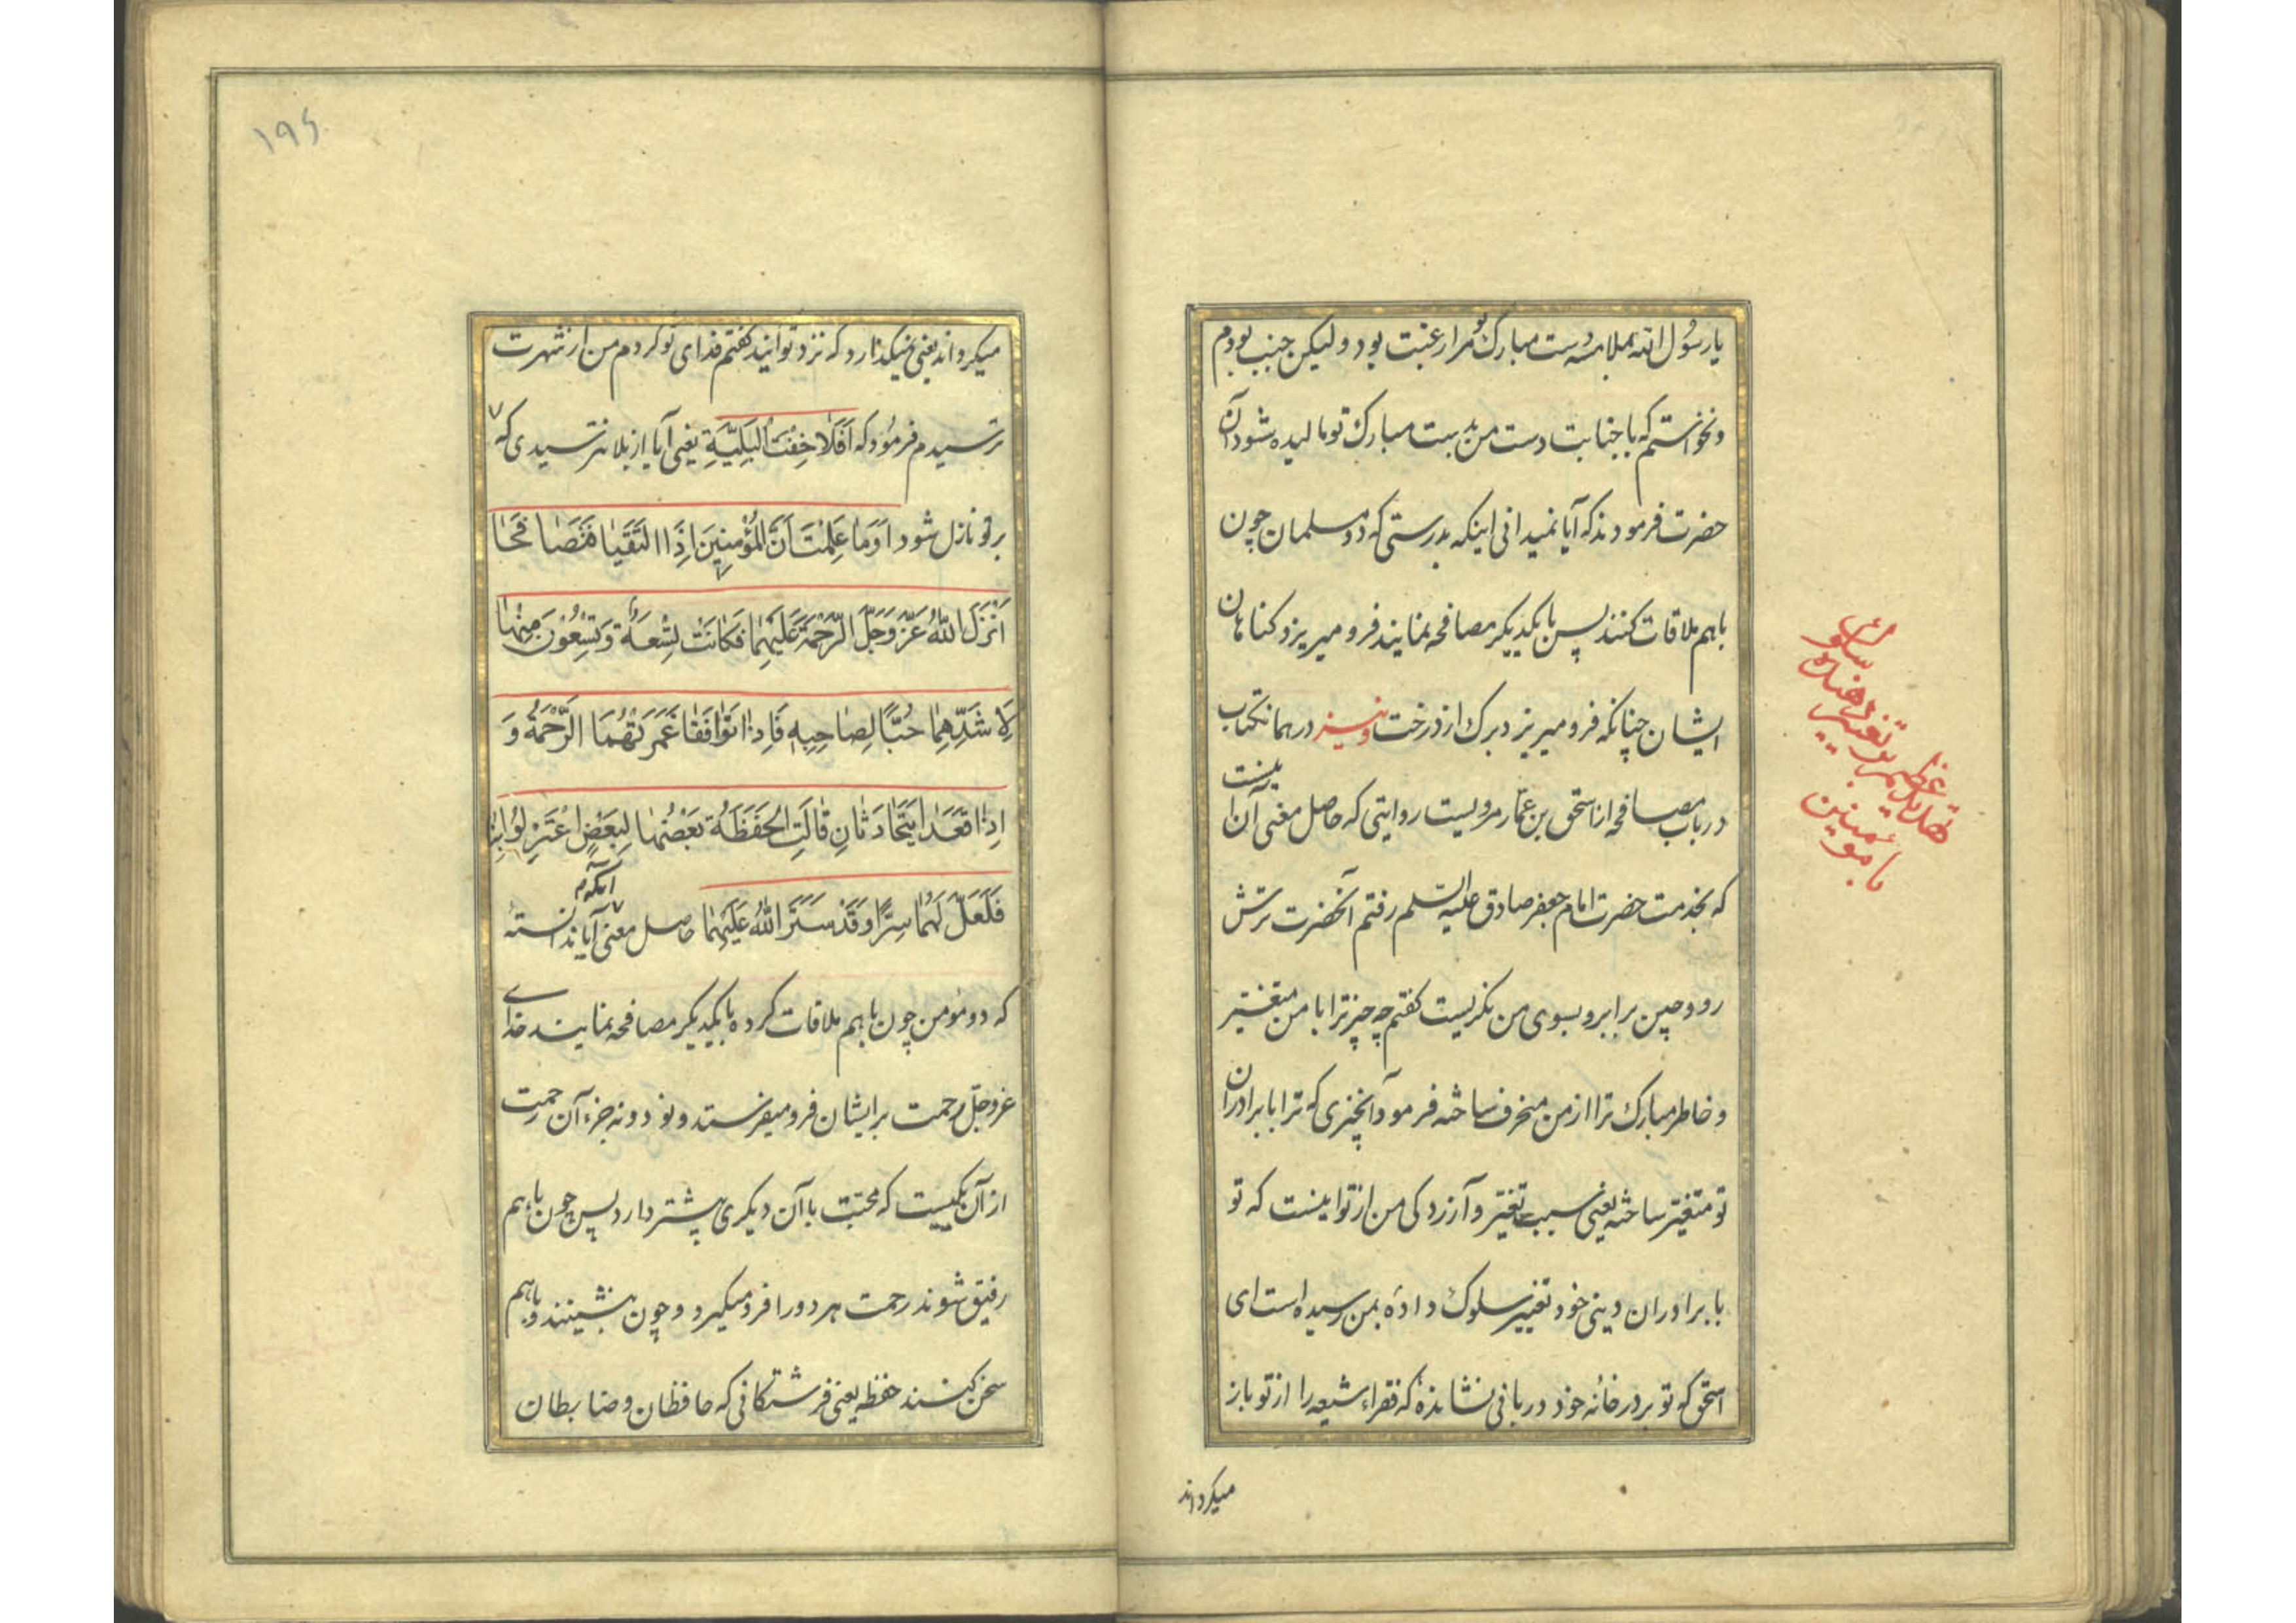 یا رسول الله بملامسه دست مبارک تو مرا رغبت بود ولیکن جنب بودم
و نخواستم که با جنابت دست من بدست مبارک تو مالیده شود آن
حضرت فرمودند که آیا نمیدانی اینکه بدرستی که دو مسلمان چون
باهم ملاقات کنند پس با یکدیگر مصافحه نمایند فرو میریزد کناهان
ایشان چنانکه فرو میریزد برک از درخت و نیز در همان کتاب
در باب مصافحه از اسحق بن عمار مرویست روایتی که حاصل معنی آن اینست
که بخدمت حضرت امام جعفر صادق علیه السلم رفتم آنحضرت ترش
رو و چین بر ابرو بسوی من نکریست کفتم چه چیز ترا با من متغیر
و خاطر مبارک ترا از من منحرف ساخته فرمود آنچیزی که ترا با برادران
تو متغیر ساخته یعنی سبب تغیر و آزردکی من از تو اینست که تو
با برادران دینی خود تغییر سلوک داده بمن رسیده است ای
اسحق که تو بر در خانه خود دربانی نشانده که فقراء شیعه را از تو باز
میکرداند
سلوک
با مؤمنین
۱۹۶
میکرداند یعنی نمیکذارد که نزد تو آیند کفتم فدای تو کردم من از شهرت
ترسیدم فرمود که اَفَلاٰ خِفْتَ الْبَلِیَّةِ یعنی آیا از بلا نترسیدی که
بر تو نازل شود اَوَمٰا عَلِمْتَ اَنَّ الْمُؤْمِنِینَ اِذَا الْتَقَیٰا فَتَصٰافَحٰا
اَنْزَلَ اللّٰهُ عَزَّ وَجَلَّ الرَّحْمَةَ عَلَیْهِمٰا فَکٰانَتْ تِسْعَةً وَ تِسْعُوْنَ مِنْهٰا
لِاَشَدِّهِمٰا حُبّاً لِصٰاحِبِهِ فَاِذٰا تَوٰافَقٰا غَمَرَتْهُمَا الرَّحْمَةُ وَ
اِذٰا قَعَدٰا یَتَحٰادَثٰانِ قٰالَتِ الْحَفَظَةُ بَعْضُهٰا لِبَعْضٍ اِعْتَزِلُوْا بِنٰا
فَلَعَلَّ لَهُمٰا سِرّاً وَقَدْ سَتَرَ اللّٰهُ عَلَیْهِمٰا حاصل معنی آنکه آیا ندانسته
که دو مؤمن چون باهم ملاقات کرده با یکدیکر مصافحه نمایند خدای
عزوجل رحمت بر ایشان فرو میفرستد و نود و نه جزء آن رحمت
از آن یکیست که محبت با آن دیکری بیشتر دارد پس چون باهم
رفیق شوند رحمت هر دو را فرو میکیرد و چون بنشینند و باهم
سخن کنند حفظه یعنی فرشتکانی که حافظان و ضابطان